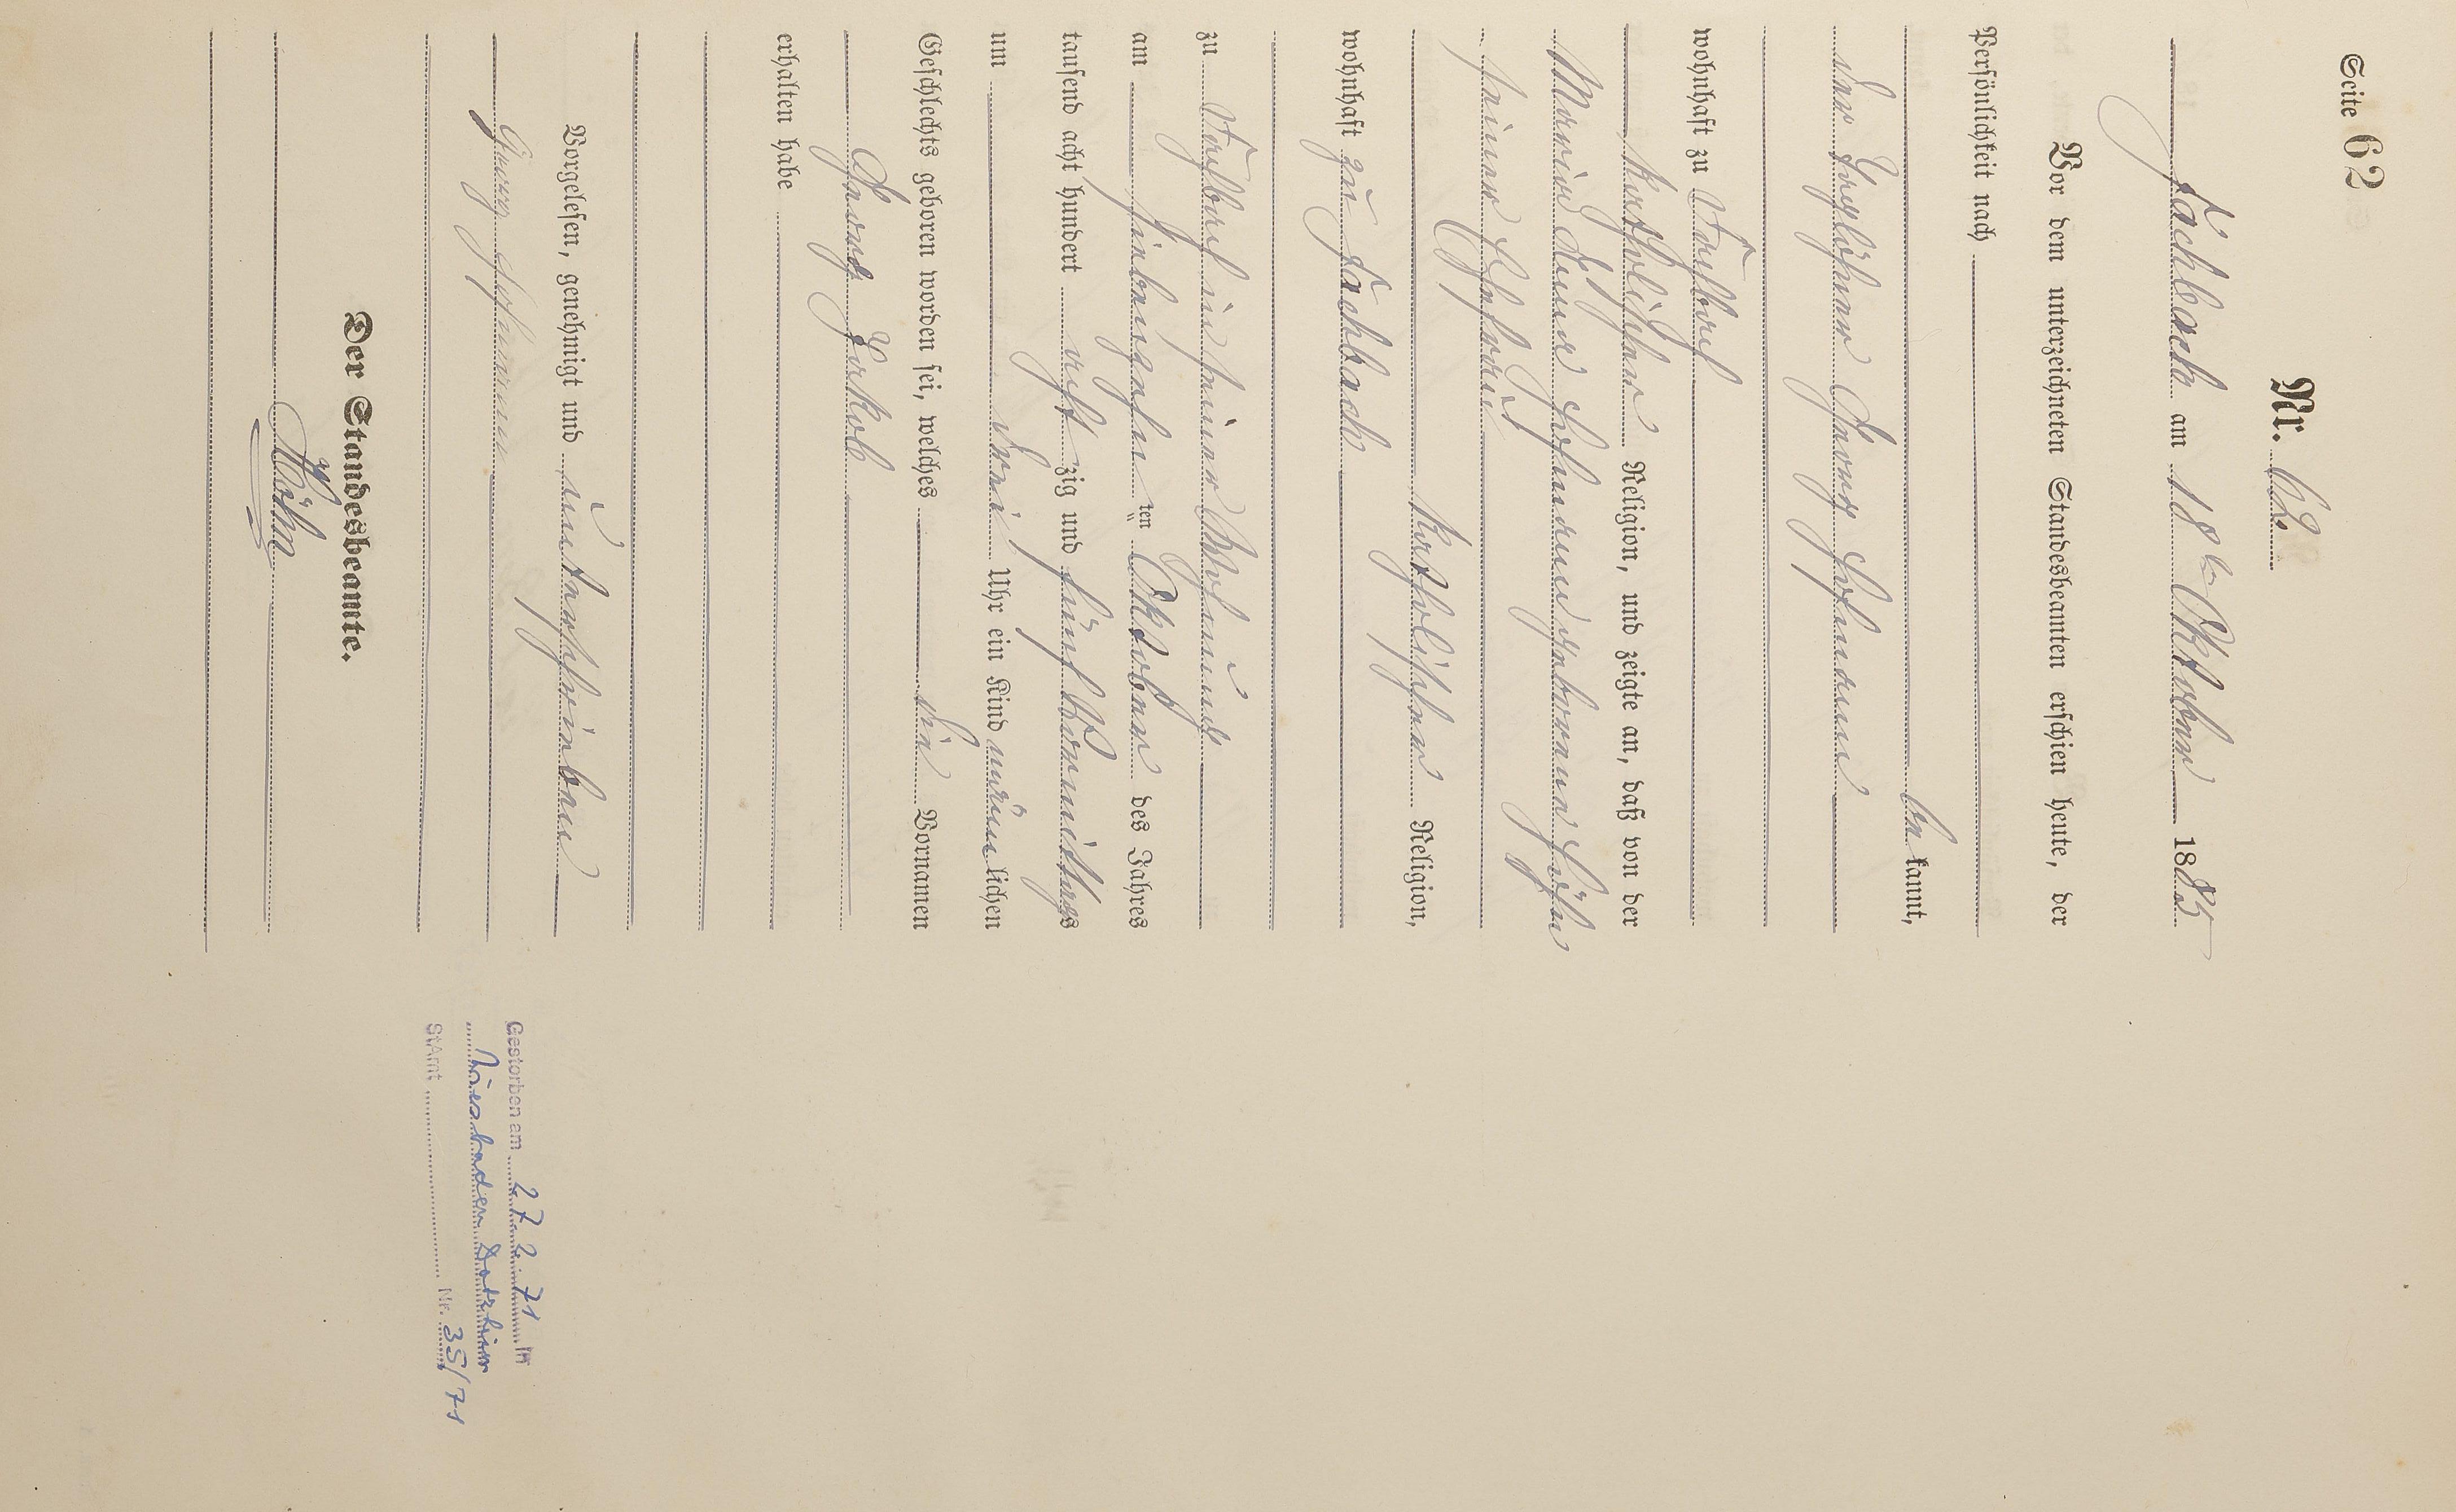 Seite 62
Nr. 62.
Fachbach am 18ten Oktober 1885
Vor dem unterzeichneten Standesbeamten erschien heute, der
Persönlichkeit nach
bekannt,
der Taglöhner Georg Hofmann
wohnhaft zu Fachbach
katholischer Religion, und zeigte an, daß von der
Maria Anna Hofmann geborene Höhn
seiner Ehefrau
katholischer Religion,
wohnhaft zu Fachbach
zu Fachbach in seiner Wohnung
am siebenzehnten Oktober des Jahres
tausend acht hundert achtzig und fünf Vormittags
um drei Uhr ein Kind männlichen
Geschlechts geboren worden sei, welches die Vornamen
Georg Jakob
erhalten habe
Vorgelesen, genehmigt und unterschrieben
Georg Hofmann
Der Standesbeamte.
Höhn
Gestorben am 27.2.71 in
Wiesbaden Dotzheim
StAmt Nr. 35/71